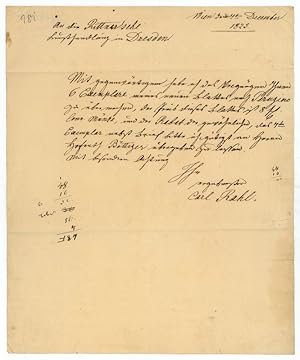 Wien den 4ten December
1825
An die Rittner'sche
Kunsthandlung in Dresden
Mit gegenwärtigem habe ich das Vergnügen Ihnen
6 Exemplare meines neuen Blattes nach Perugino
zu übersenden, der Preis dieses Blattes ist 8 f
Conv. Münze, und der Rabat der gewöhnliche, das 7te
Exemplar nebst Brief bitte ich gütigst an Herrn
Hofrath Böttiger übergeben zu lassen
Mit besondrer Achtung
Ihr
ergebenster
Carl Rahl
48
10